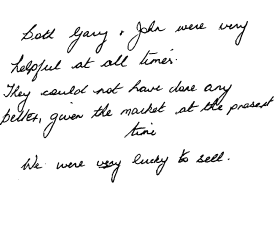 Both Gary & John were very
helpful at all times.
They could not have done any
better, given the market at the present
time
We were very lucky to sell.